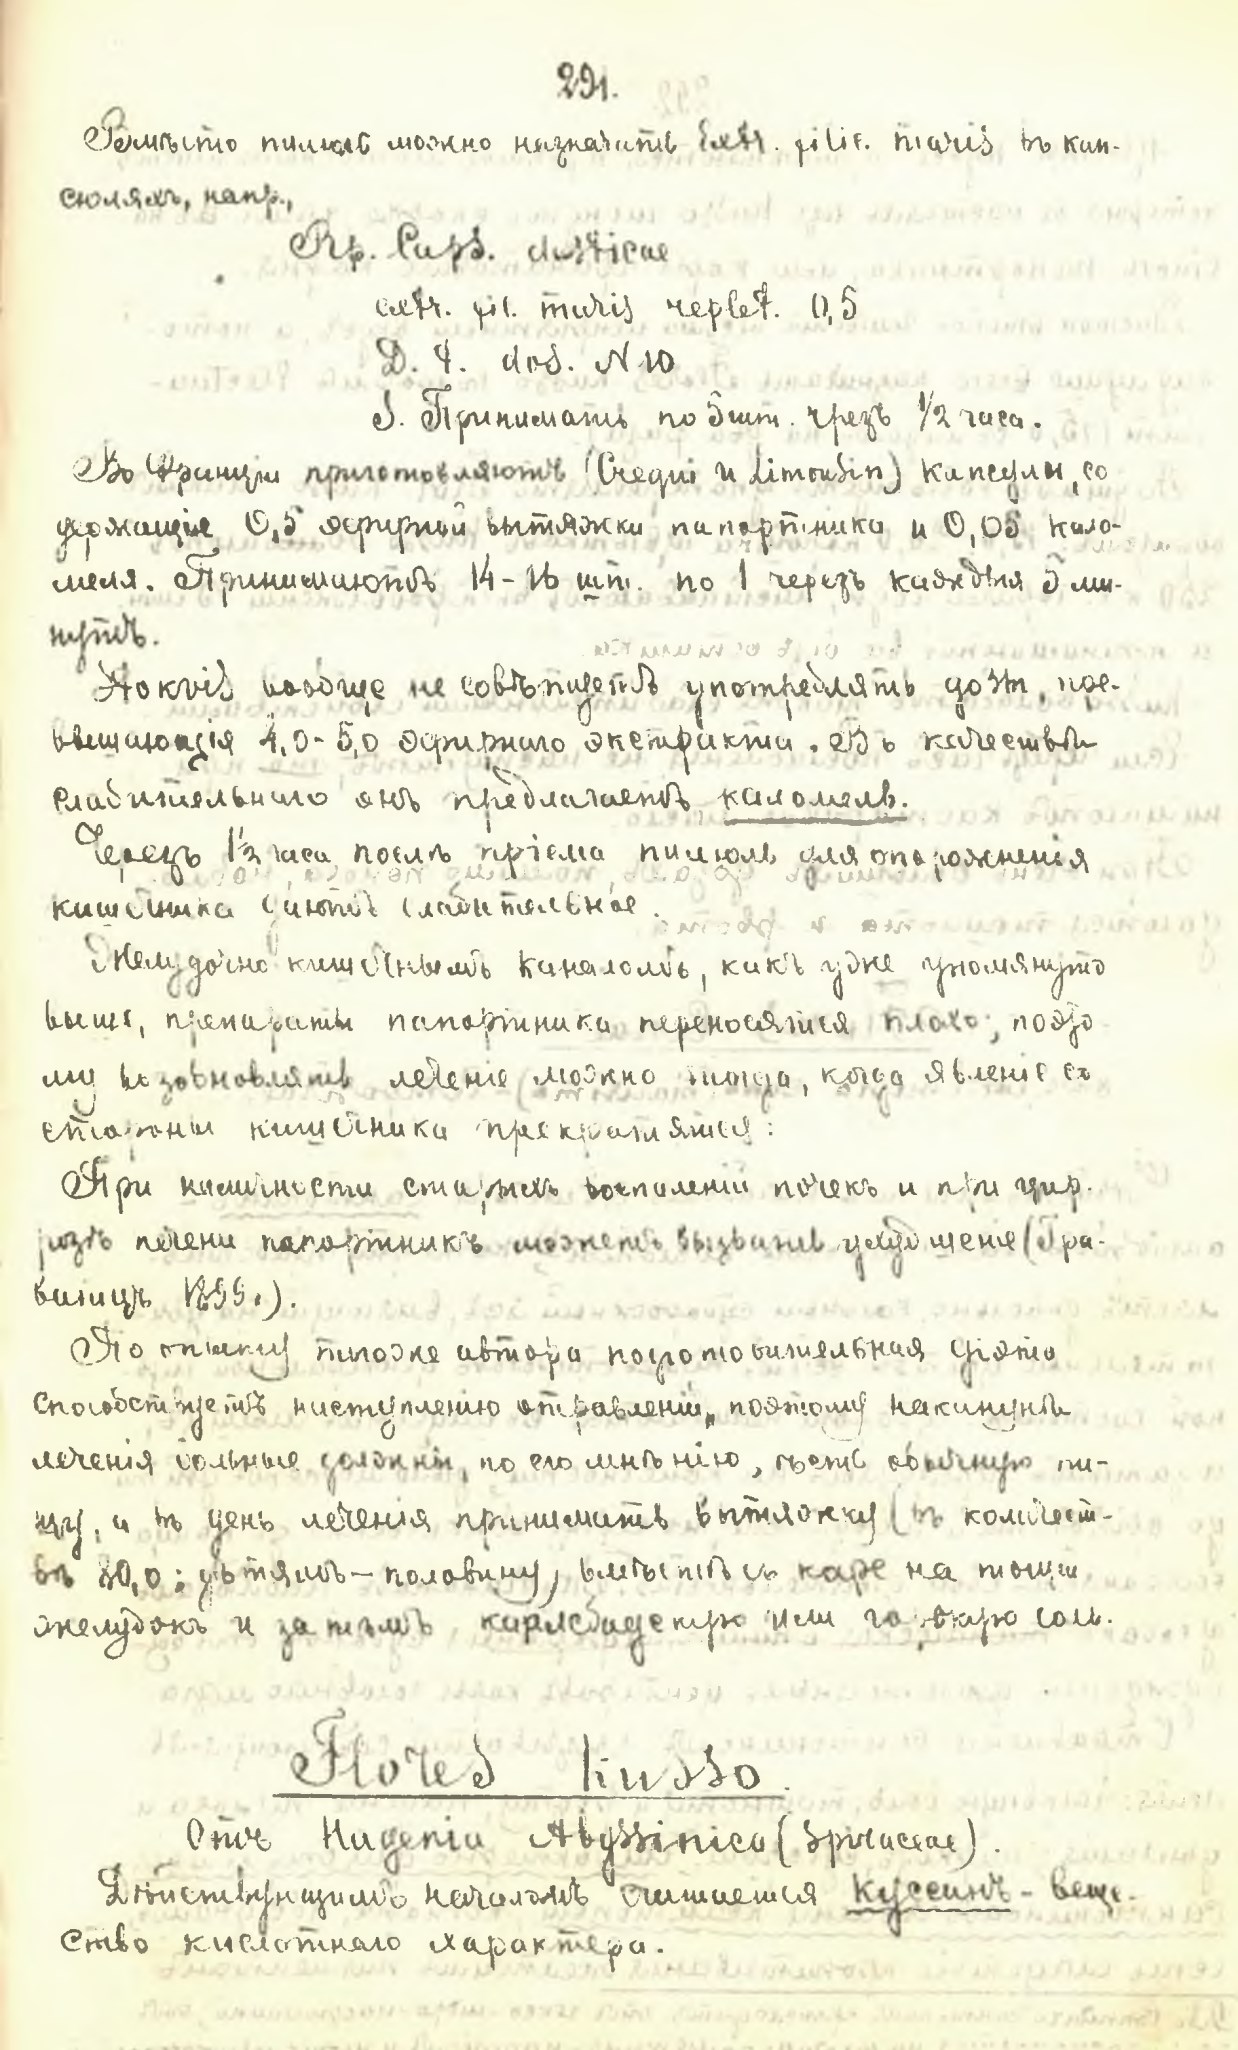 291.
Вмѣсто пилюль можно назначать Extr. filic. maris въ кап-
сюляхъ, напр.,
Rp. Caps. elasticae
extr. fil. maris replet. 0,5
D. t. dos. N 10
S. Принимать по 5 шт. чрезъ 1/2 часа.
Во Франціи приготовляютъ (Crequi и Limousin) капсулы, со
держащіе 0,5 эфирной вытяжки папортника и 0,05 кало-
меля. Принимаютъ 14-16 шт. по 1 черезъ каждыя 5 ми-
нутъ.
вообще не совѣтуетъ употреблять дозы, пре-
вышающія 4,0-5,0 эфирнаго экстракта. Въ качествѣ
слабительнаго онъ предлагаетъ каломель.
Черезъ 1/2 часа послѣ пріема пилюль для опорожненія
кишечника даютъ слабительное.
Желудочно кишечнымъ каналомъ, какъ уже упомянуто
выше, препараты папортника переносятся плохо, поэто
му возобновлять леченіе можно тогда, когда явленіе со
стороны кишечника прекратятся:
При наличности старыхъ воспаленій почекъ и при цир-
розѣ печени папортникъ можетъ вызвать ухудшеніе (Гра-
вицъ 1899.).
По опыту того же автора подготовительная діэта
способствуетъ наступленію отравленій, поэтому наканунѣ
леченія больные должны, по его мнѣнію, ѣсть обычную пи-
щу, а въ день леченія принимать вытяжку (въ количест-
вѣ 10,0; дѣтямъ - половину) вмѣстѣ съ кофе на тощій
желудокъ и затѣмъ карлсбадскую или горькую соль.
Flores Kusso.
Отъ Hagenia Abyssinica (Spiraceae).
Дѣйствующимъ началомъ считается куссинъ - веще-
ство кислотнаго характера.